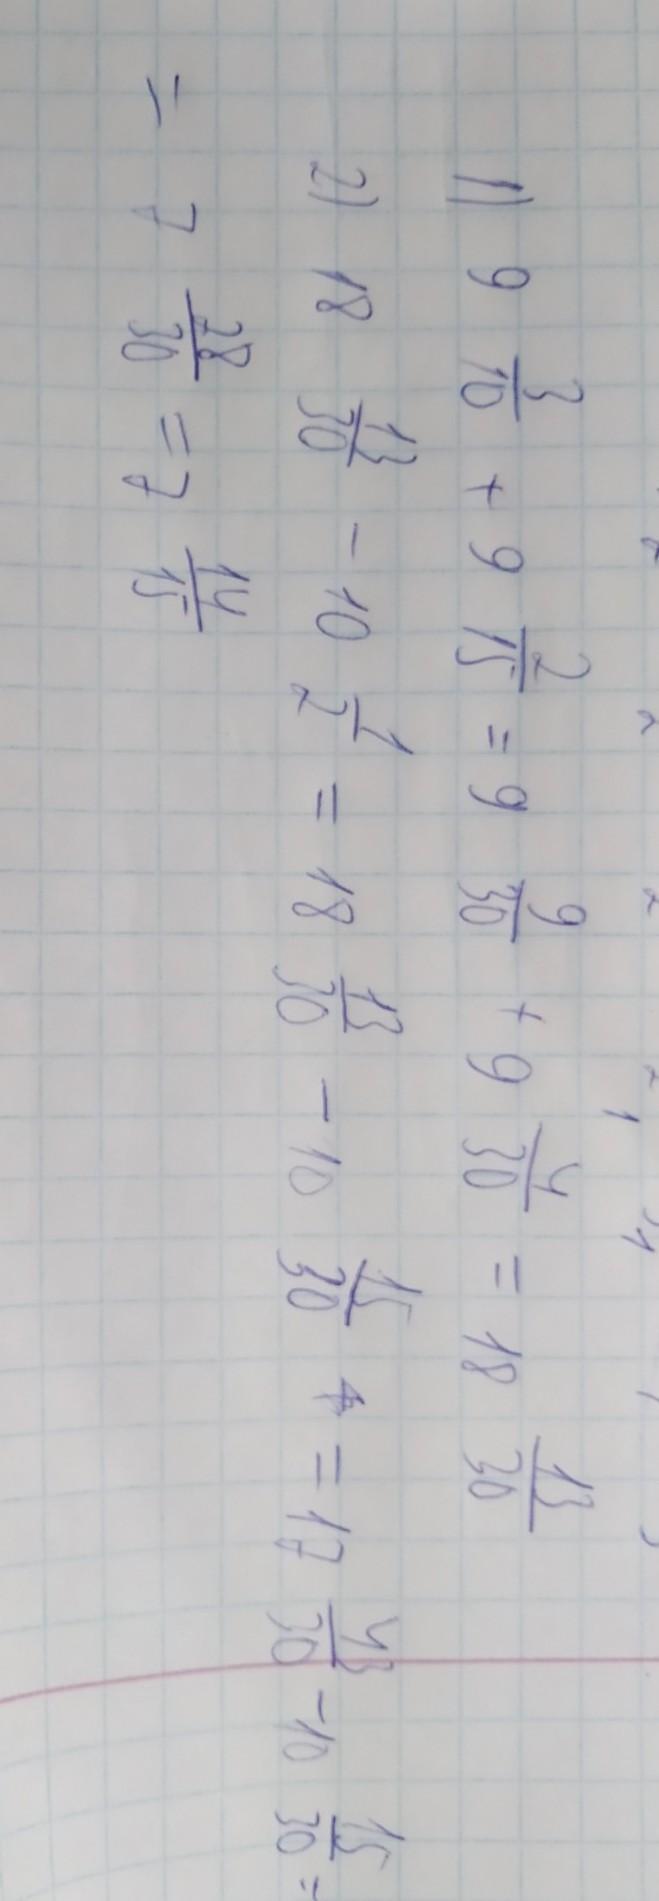 1) 9 3/10 + 9 2/15 = 9 9/30 + 9 4/30 = 18 13/30
2) 18 13/30 - 10 1/2 = 18 13/30 - 10 15/30 = 17 43/30 - 10 15/30 =
= 7 28/30 = 7 14/15